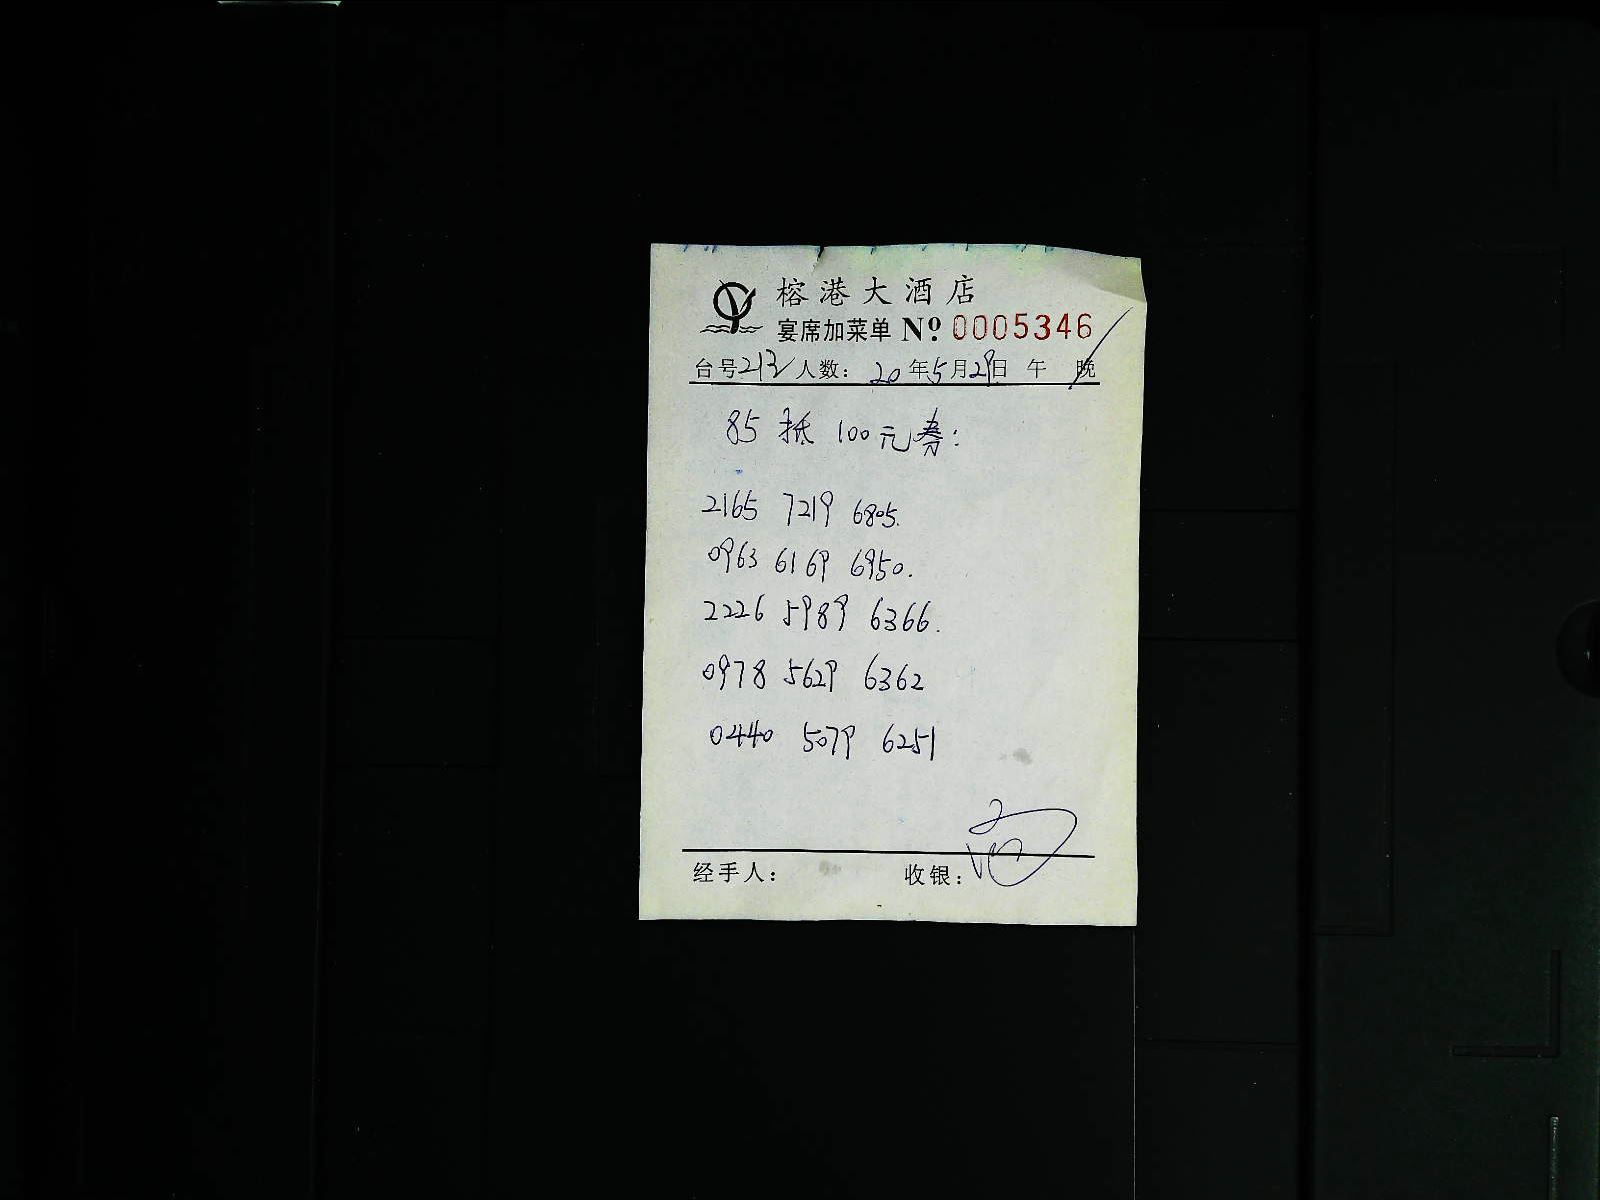 榕港大酒店
宴席加菜单 Nº 0005346
台号 213 人数: 20年5月29日 午 晚
85 抵 100元券:
2165 7219 6805.
0963 6169 6950.
2226 5989 6366.
0978 5629 6362
0440 5079 6251
经手人: 收银: